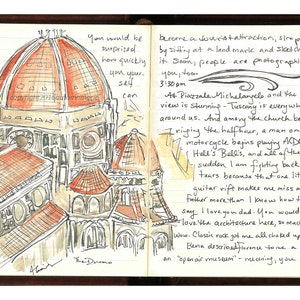 You would be
surprised
how quickly
you your-
self
can
become a tourist attraction, simply
by sitting at a landmark and sketching
it. Soon, people are photographing
you, too.
3:30 pm
At Piazzale Michelangelo and the
view is stunning - Tuscany is everywhere
around us. And among the church bells
ringing the half hour, a man on a
motorcycle begins playing ACDC
Hell's Bells, and all of a
sudden, I am fighting back
tears because that one lit
guitar riff makes me miss my
father more than I know how to
say. I love you dad. You would
love the architecture here, so much
Classic rock got me all choked up.
described Florence to me as
an "open air museum" - meaning, you
The Duomo